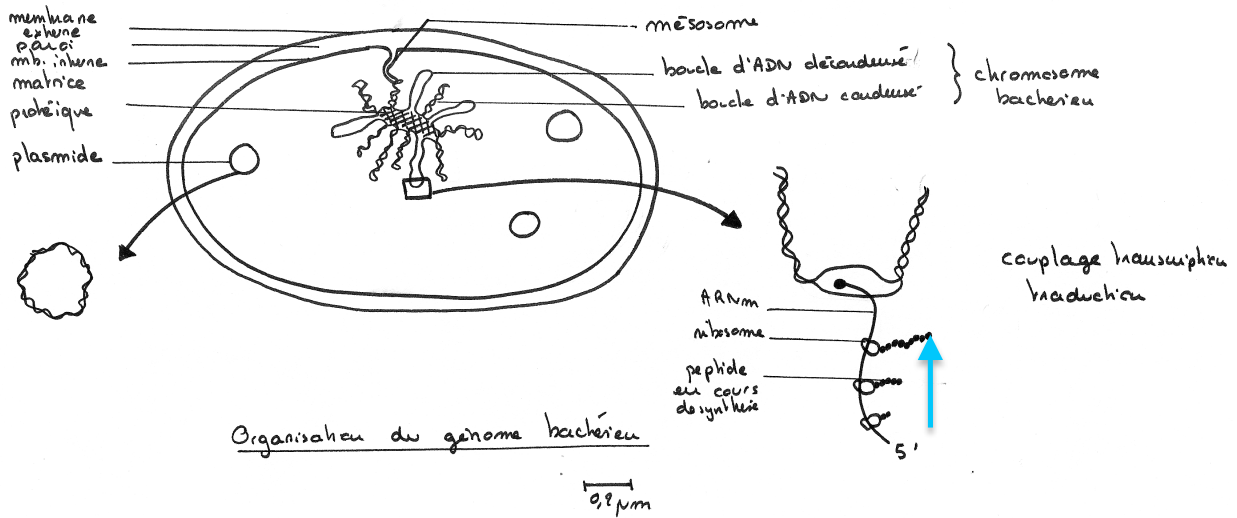 membrane
externe
paroi
mb. interne
matrice
protéique
plasmide
mésosome
boucle d'ADN décondensé
boucle d'ADN condensé
chromosome
bactérien
couplage transcription
traduction
ARNm
ribosome
peptide
en cours
de synthèse
5'
Organisation du génome bactérien
0,2 µm